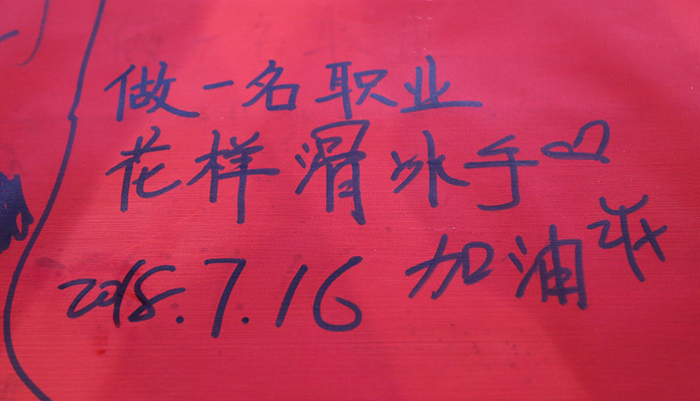 做一名职业
花样滑冰手♡
2018.7.16 加油